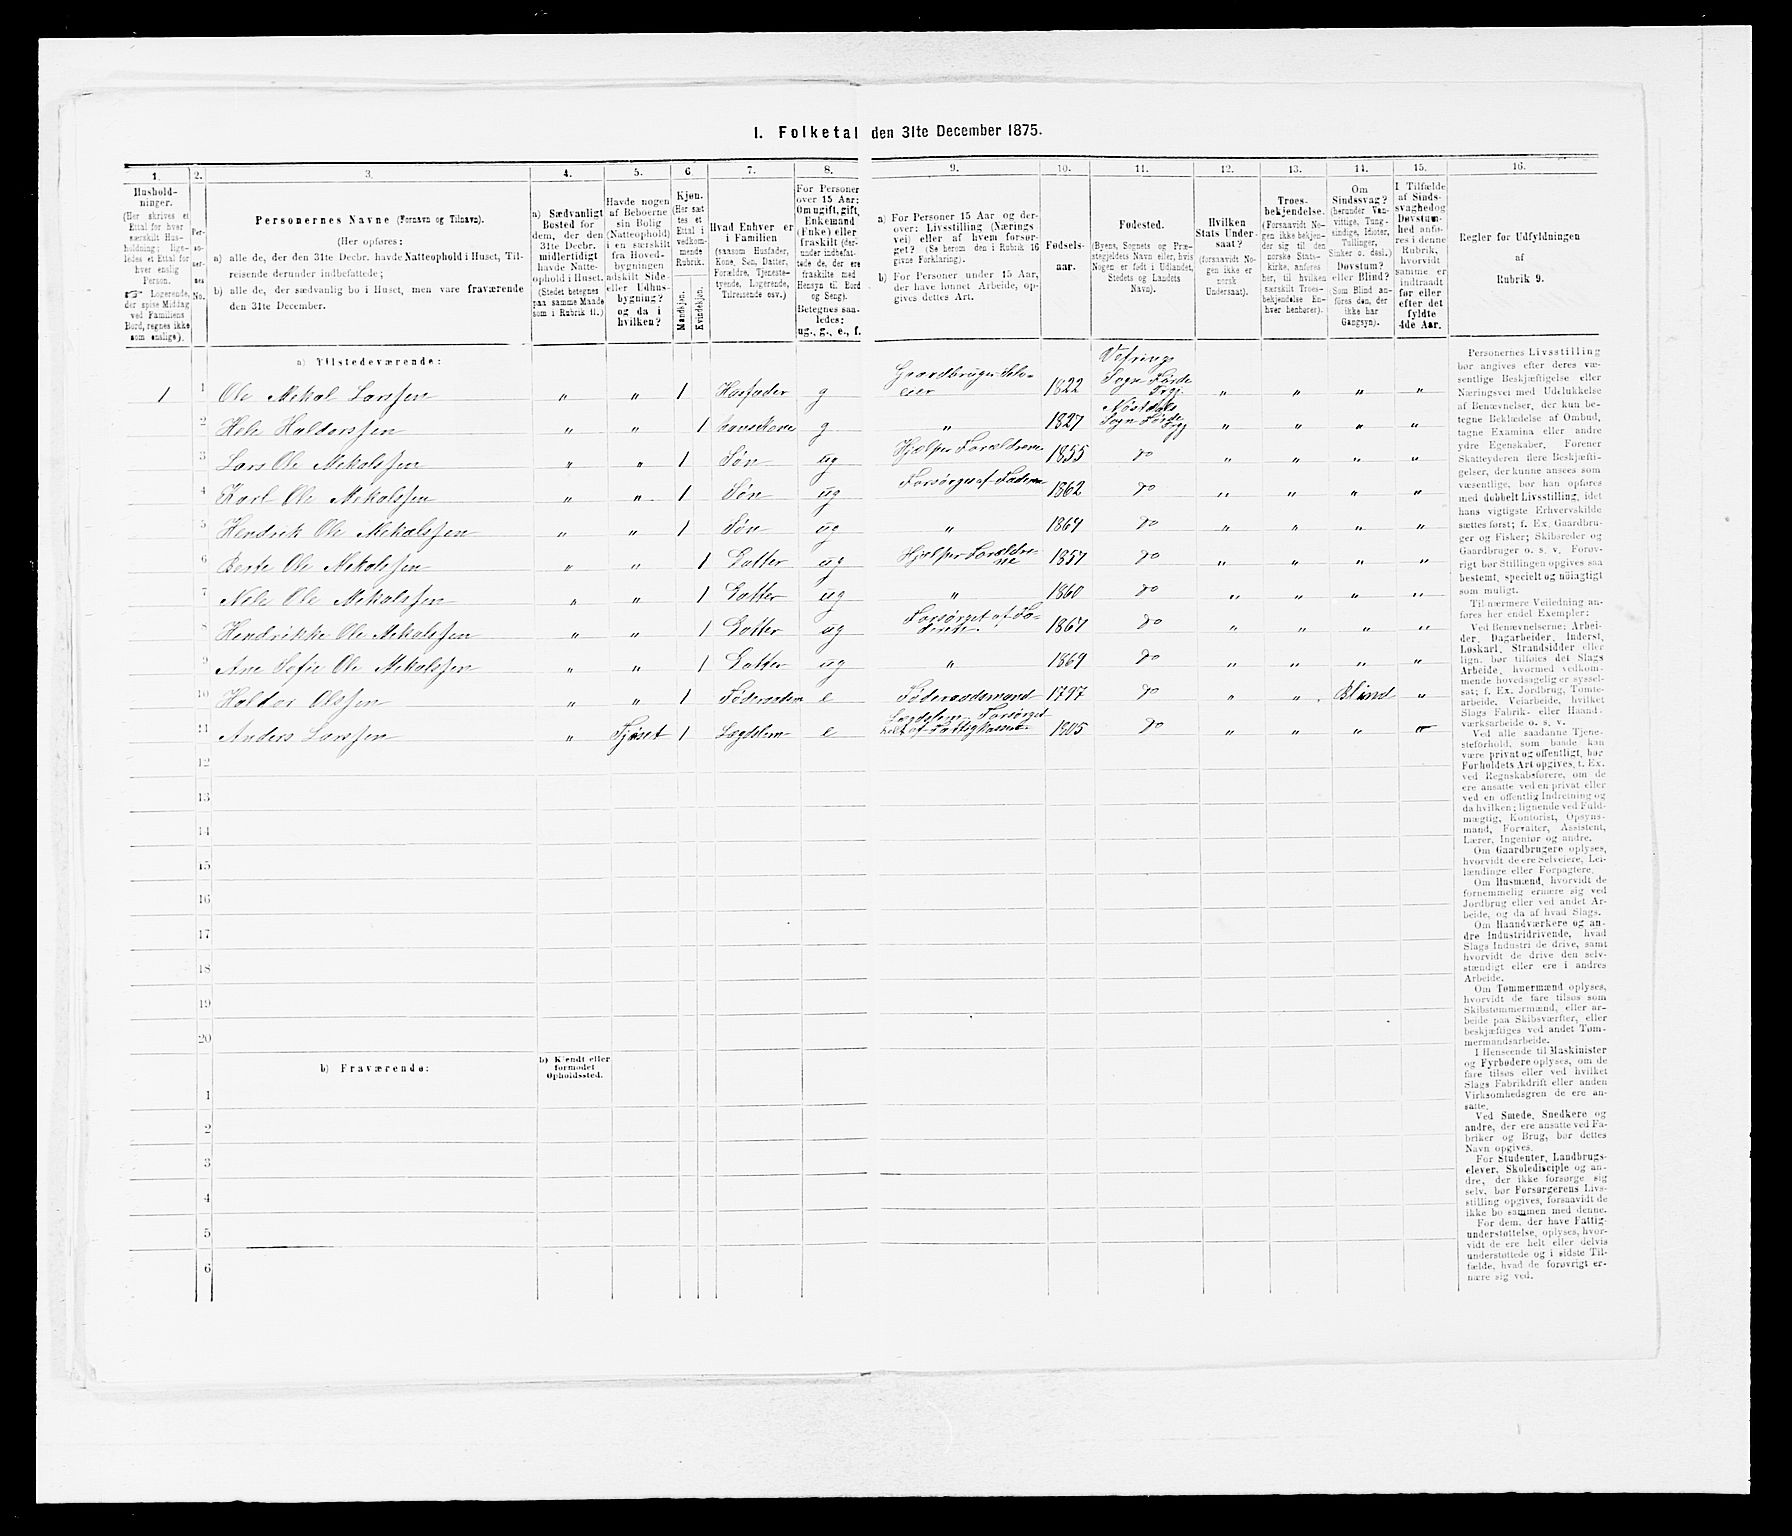 I. Folketal den 31te December 1875.
1. 2. 3. 4. 5. 6. 7. 8. 9. 10. 11. 12. 13. 14. 15. 16.
Hushold-
ninger.
(Her skrives et
Ettal for hver
særskilt Hus-
holdning; lige-
ledes et Ettal for
hver enslig
Person.
☞ Logerende,
der spise Middag
ved Familiens
Bord, regnes ikke
som enslige).
Per-
so-
ner-
nes
No.
Personernes Navne (Fornavn og Tilnavn).
(Her opføres:
a) alle de, der den 31te Decbr. havde Natteophold i Huset, Til-
reisende derunder indbefattede;
b) alle de, der sædvanlig bo i Huset, men vare fraværende
den 31te December.
a) Sædvanligt
Bosted for
dem, der den
31te Decbr.
midlertidigt
havde Natte-
ophold i Huset.
(Stedet betegnes
paa samme Maade
som i Rubrik 11.)
Havde nogen
af Beboerne
sin Bolig
(Natteophold)
i en særskilt
fra Hoved-
bygningen
adskilt Side-
eller Udhus-
bygning?
og da i
hvilken?
Kjøn.
(Her sæt-
tes et
Ettal i
vedkom-
mende
Rubrik.
Mandkjøn.
Kvindekjøn.
Hvad Enhver er
i Familien
(saasom Husfader,
Kone, Søn, Datter,
Forældre, Tjeneste-
tyende, Logerende,
Tilreisende osv.)
For Personer
over 15 Aar:
Om ugift, gift,
Enkemand
(Enke) eller
fraskilt (der-
under indbefat-
tede de, der ere
fraskilte med
Hensyn til Bord
og Seng).
Betegnes saa-
ledes:
ug., g., e., f.
a) For Personer 15 Aar og der-
over: Livsstilling (Nærings-
vei) eller af hvem forsør-
get? (Se herom den i Rubrik 16
givne Forklaring).
b) For Personer under 15 Aar,
der have lønnet Arbeide, op-
gives dettes Art.
Fødsels-
aar.
Fødested.
(Byens, Sognets og Præ-
stegjeldets Navn eller, hvis
Nogen er født i Udlandet,
Stedets og Landets
Navn).
Hvilken
Stats Under-
saat?
(forsaavidt No-
gen ikke er
norsk
Undersaat).
Troes-
bekjendelse.
(Forsaavidt No-
gen ikke bekjen-
der sig til den
norske Stats-
kirke, anføres
her, til hvilken
særskilt Troes-
bekjendelse En-
hver henhører).
Om
Sindssvag?
(herunder Van-
vittige, Tung-
sindige, Idioter,
Tullinger,
Sinker o. desl.).
Døvstum?
eller Blind?
(Som Blind an-
føres den, der
ikke har
Gangsyn).
I Tilfælde
af Sinds-
svaghed og
Døvstum-
hed anfø-
res i denne
Rubrik,
hvorvidt
samme er
indtraadt
før eller
efter det
fyldte
4de Aar.
Regler for Udfyldningen
af
Rubrik 9.
a) Tilstedeværende:
1 1 Ole Mekal Larssen „ „ 1 Husfader g Gaardbruger Selv-eier 1822 Vefrings Sogn Førde Prgj. „ „ „ „
2 Hele Haldorssen „ „ 1 huuskone g „ 1827 Nøstdals Sogn Førde Prgj „ „ „ „
3 Lars Ole Mekalssen „ „ 1 Søn ug Hjælper Forældrene 1855 Do „ „ „ „
4 Karl Ole Mekalssen „ „ 1 Søn ug Forsørges af Faderen 1862 Do „ „ „ „
5 Hendrik Ole Mekalssen „ „ 1 Søn ug „ 1864 Do „ „ „ „
6 Berte Ole Mekalssen „ „ 1 Datter ug Hjælper Forældrene 1857 Do „ „ „ „
7 Nele Ole Mekalssen „ „ 1 Datter ug „ 1860 Do „ „ „ „
8 Hendrikke Ole Mekalssen „ „ 1 Datter ug Forsørget af Fa- 1867 Do „ „ „ „
9 Ane Sofie Ole Mekalssen „ „ 1 Datter ug „ 1869 Do „ „ „ „
10 Haldor Olssen „ „ 1 e Føderaadsmand 1797 Do „ „ Blind „
11 Anders Larssen „ Fjøset 1 Lægdslem e Lægdslem Forsørget helt af Fattigkassen 1805 Do „ „ „ „
12
13
14
15
16
17
18
19
20
b) Fraværende:
b) Kjendt eller
formodet
Opholdssted.
1
2
3
4
5
6
Personernes Livsstilling
bør angives efter deres væ-
sentlige Beskjæftigelse eller
Næringsvei med Udelukkelse
af Benævnelser, der kun be-
tegne Beklædelse af Ombud,
tagne Examina eller andre
ydre Egenskaber. Forener
Skatteyderen flere Beskjæfti-
gelser, der kunne ansees som
væsentlige, bør han opføres
med dobbelt Livsstilling, idet
hans vigtigste Erhvervskilde
sættes først; f. Ex. Gaardbru-
ger og Fisker; Skibsreder og
Gaardbruger o. s. v. Forøv-
rigt bør Stillingen opgives saa
bestemt, specielt og nøiagtigt
som muligt.
Til nærmere Veiledning an-
føres her endel Exempler:
Ved Benævnelserne: Arbei-
der, Dagarbeider, Inderst,
Løskarl, Strandsidder eller
lign. bør tilføies det Slags
Arbeide, hvormed vedkom-
mende hovedsagelig er syssel-
sat; f. Ex. Jordbrug, Tomte-
arbeide, Veiarbeide, hvilket
Slags Fabrik- eller Haand-
værksarbeide o. s. v.
Ved alle saadanne Tjene-
steforhold, som baade kan
være privat og offentligt, bør
Forholdets Art opgives, t. Ex.
ved Regnskabsførere, om de
ere ansatte ved en privat eller
ved en offentlig Indretning og
da hvilken; lignende ved Fuld-
mægtig, Kontorist, Opsyns-
mand, Forvalter, Assistent,
Lærer, Ingeniør og andre.
Om Gaardbrugere oplyses,
hvorvidt de ere Selveiere, Lei-
lændinge eller Forpagtere.
Om Husmænd, hvorvidt de
fornemmelig ernære sig ved
Jordbrug eller ved andet Ar-
beide, og da af hvad Slags.
Om Haandværkere og an-
dre Industridrivende, hvad
Slags Industri de drive, samt
hvorvidt de drive den selv-
stændigt eller ere i andres
Arbeide.
Om Tømmermænd oplyses,
hvorvidt de fare tilsøs som
Skibstømmermænd, eller ar-
beide paa Skibsværfter, eller
beskjæftiges ved andet Tøm-
mermandsarbeide.
I Henseende til Maskinister
og Fyrbødere oplyses, om de
fare tilsøs eller ved hvilket
Slags Fabrikdrift eller anden
Virksomhedsgren de ere an-
satte.
Ved Smede, Snedkere og
andre, der ere ansatte ved Fa-
briker og Brug, bør dettes
Navn opgives.
For Studenter, Landbrugs-
elever, Skoledisciple og an-
dre, der ikke forsørge sig
selv, bør Forsørgerens Livs-
stilling opgives, forsaavidt de
ikke bo sammen med denne.
For dem, der have Fattig-
understøttelse, oplyses, hvor-
vidt de ere helt eller delvis
understøttede og i sidste Til-
fælde, hvad de forøvrigt er-
nære sig ved.